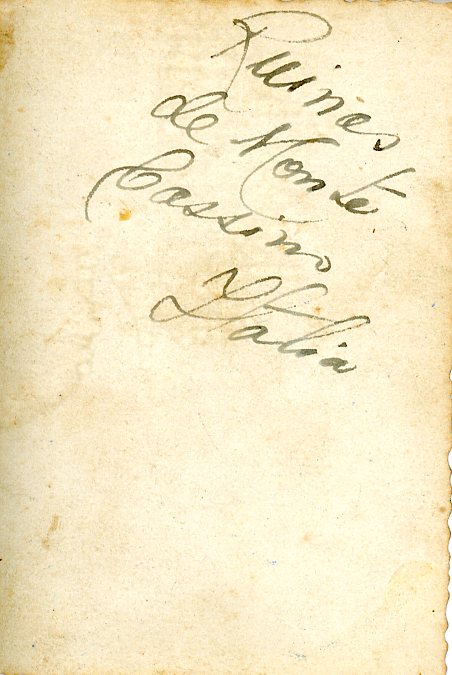 Ruines
de Monte
Cassino
Italia